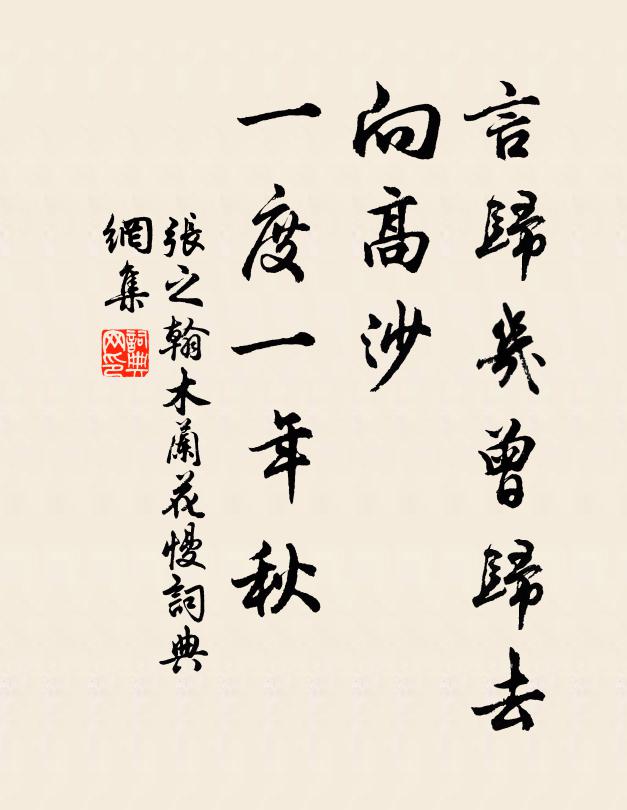 言歸幾曾歸去
向高沙
一度一年秋
張之翰木蘭花慢詞典
網集
詞典
网印